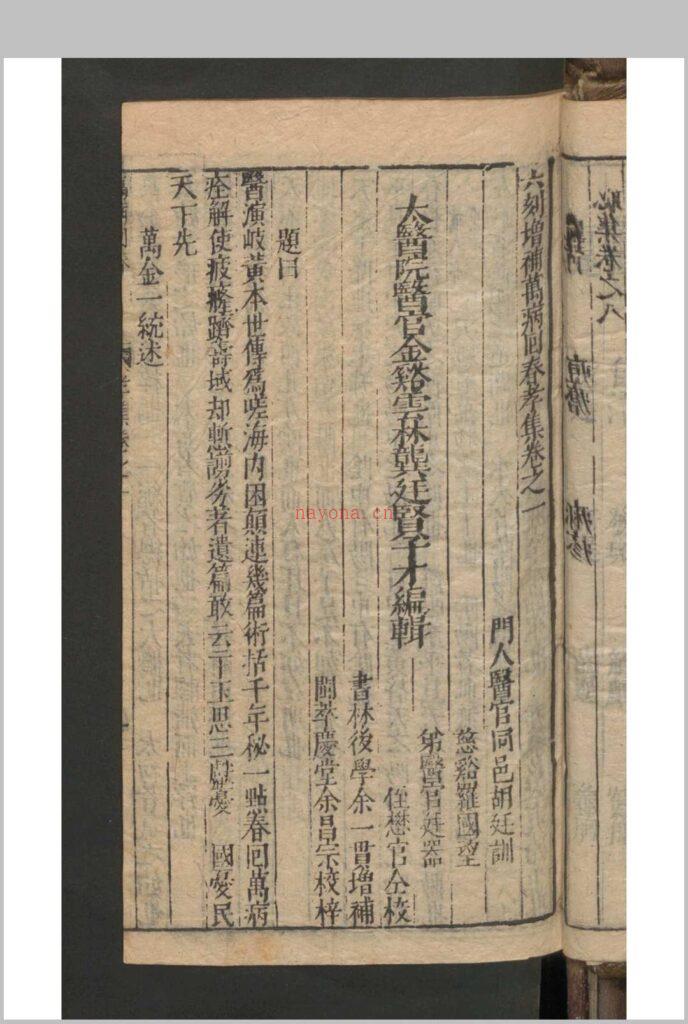 恥集卷之八
六刻增補萬病回春孝集卷之一
門人醫官同邑胡廷訓
慈谿羅國望
太醫院醫官金谿雲林龔廷賢子才編輯
弟醫官廷器
侄懋官仝校
書林後學余一貫增補
閩萃慶堂余昌宗校梓
題曰
醫演岐黃本世傳爲嗟海内困顛連幾篇術括千年秘一點春回萬病
痊解使疲癃躋壽域却慚謭劣著遺篇敢云干玉思三獻憂國愛民
天下先
萬金一統述
nayona.cn